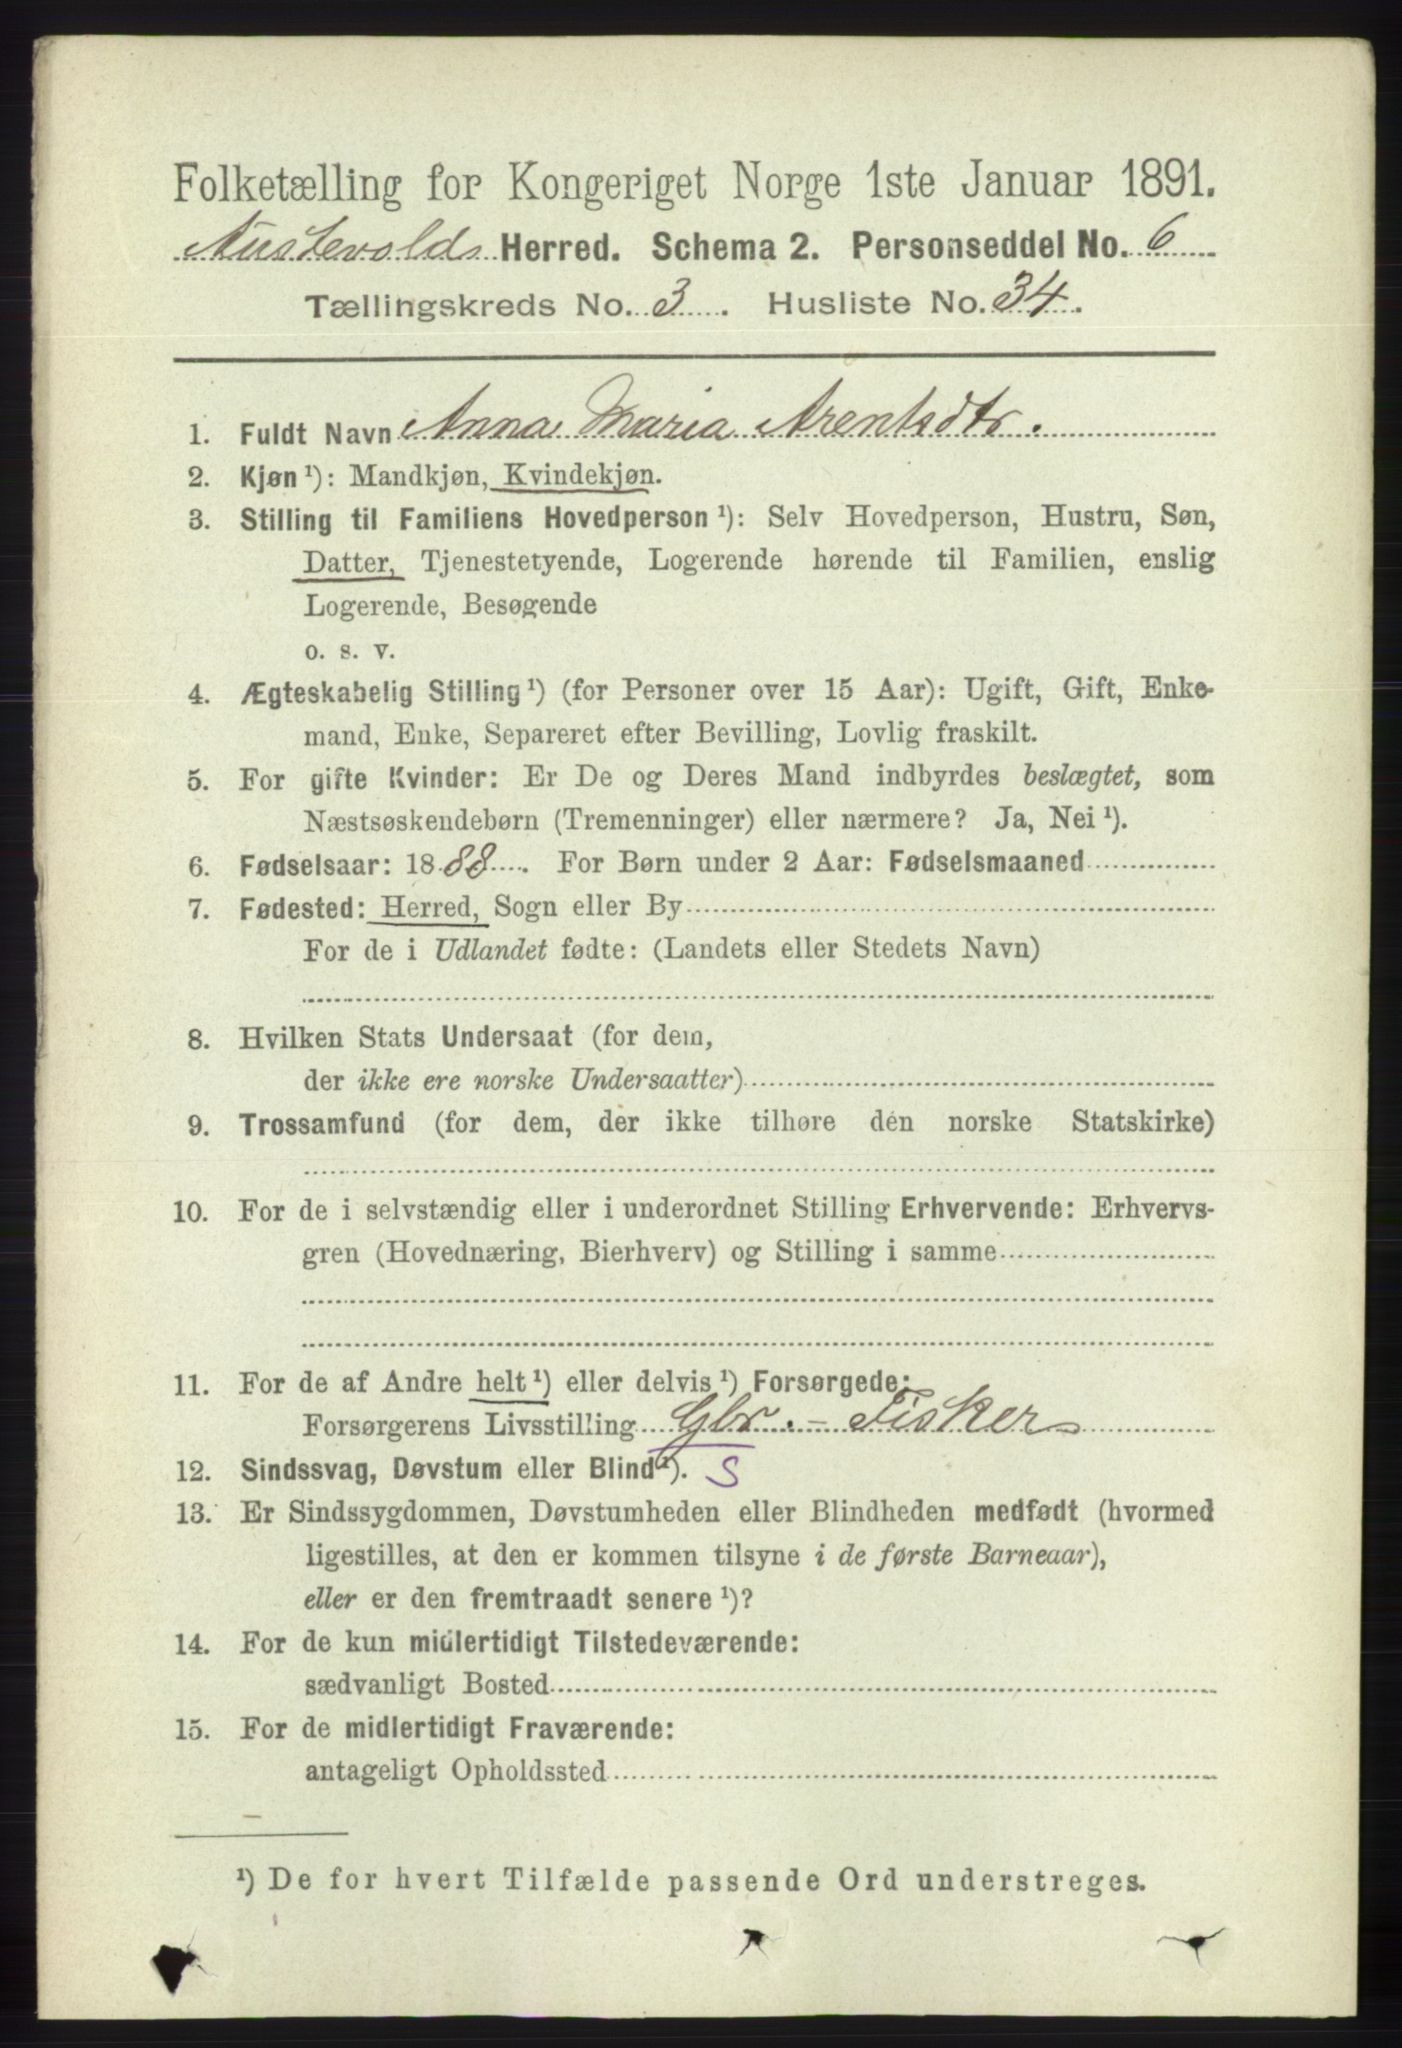 Folketælling for Kongeriget Norge 1ste Januar 1891.
Austevolds Herred. Schema 2. Personseddel No. 6
Tællingskreds No. 3. Husliste No. 34.
1. Fuldt Navn Anna Maria Arentsdtr.
2. Kjøn ¹): Mandkjøn, Kvindekjøn.
3. Stilling til Familiens Hovedperson ¹): Selv Hovedperson, Hustru, Søn,
Datter, Tjenestetyende, Logerende hørende til Familien, enslig
Logerende, Besøgende
o. s. v.
4. Ægteskabelig Stilling ¹) (for Personer over 15 Aar): Ugift, Gift, Enke-
mand, Enke, Separeret efter Bevilling, Lovlig fraskilt.
5. For gifte Kvinder: Er De og Deres Mand indbyrdes beslægtet, som
Næstsøskendebørn (Tremenninger) eller nærmere? Ja, Nei ¹).
6. Fødselsaar: 1888. For Børn under 2 Aar: Fødselsmaaned
7. Fødested: Herred, Sogn eller By
For de i Udlandet fødte: (Landets eller Stedets Navn)
8. Hvilken Stats Undersaat (for dem,
der ikke ere norske Undersaatter)
9. Trossamfund (for dem, der ikke tilhøre den norske Statskirke)
10. For de i selvstændig eller i underordnet Stilling Erhvervende: Erhvervs-
gren (Hovednæring, Bierhverv) og Stilling i samme
11. For de af Andre helt ¹) eller delvis ¹) Forsørgede:
Forsørgerens Livsstilling Gbr. - Fisker
12. Sindssvag, Døvstum eller Blind ¹). S
13. Er Sindssygdommen, Døvstumheden eller Blindheden medfødt (hvormed
ligestilles, at den er kommen tilsyne i de første Barneaar),
eller er den fremtraadt senere ¹)?
14. For de kun midlertidigt Tilstedeværende:
sædvanligt Bosted
15. For de midlertidigt Fraværende:
antageligt Opholdssted
¹) De for hvert Tilfælde passende Ord understreges.